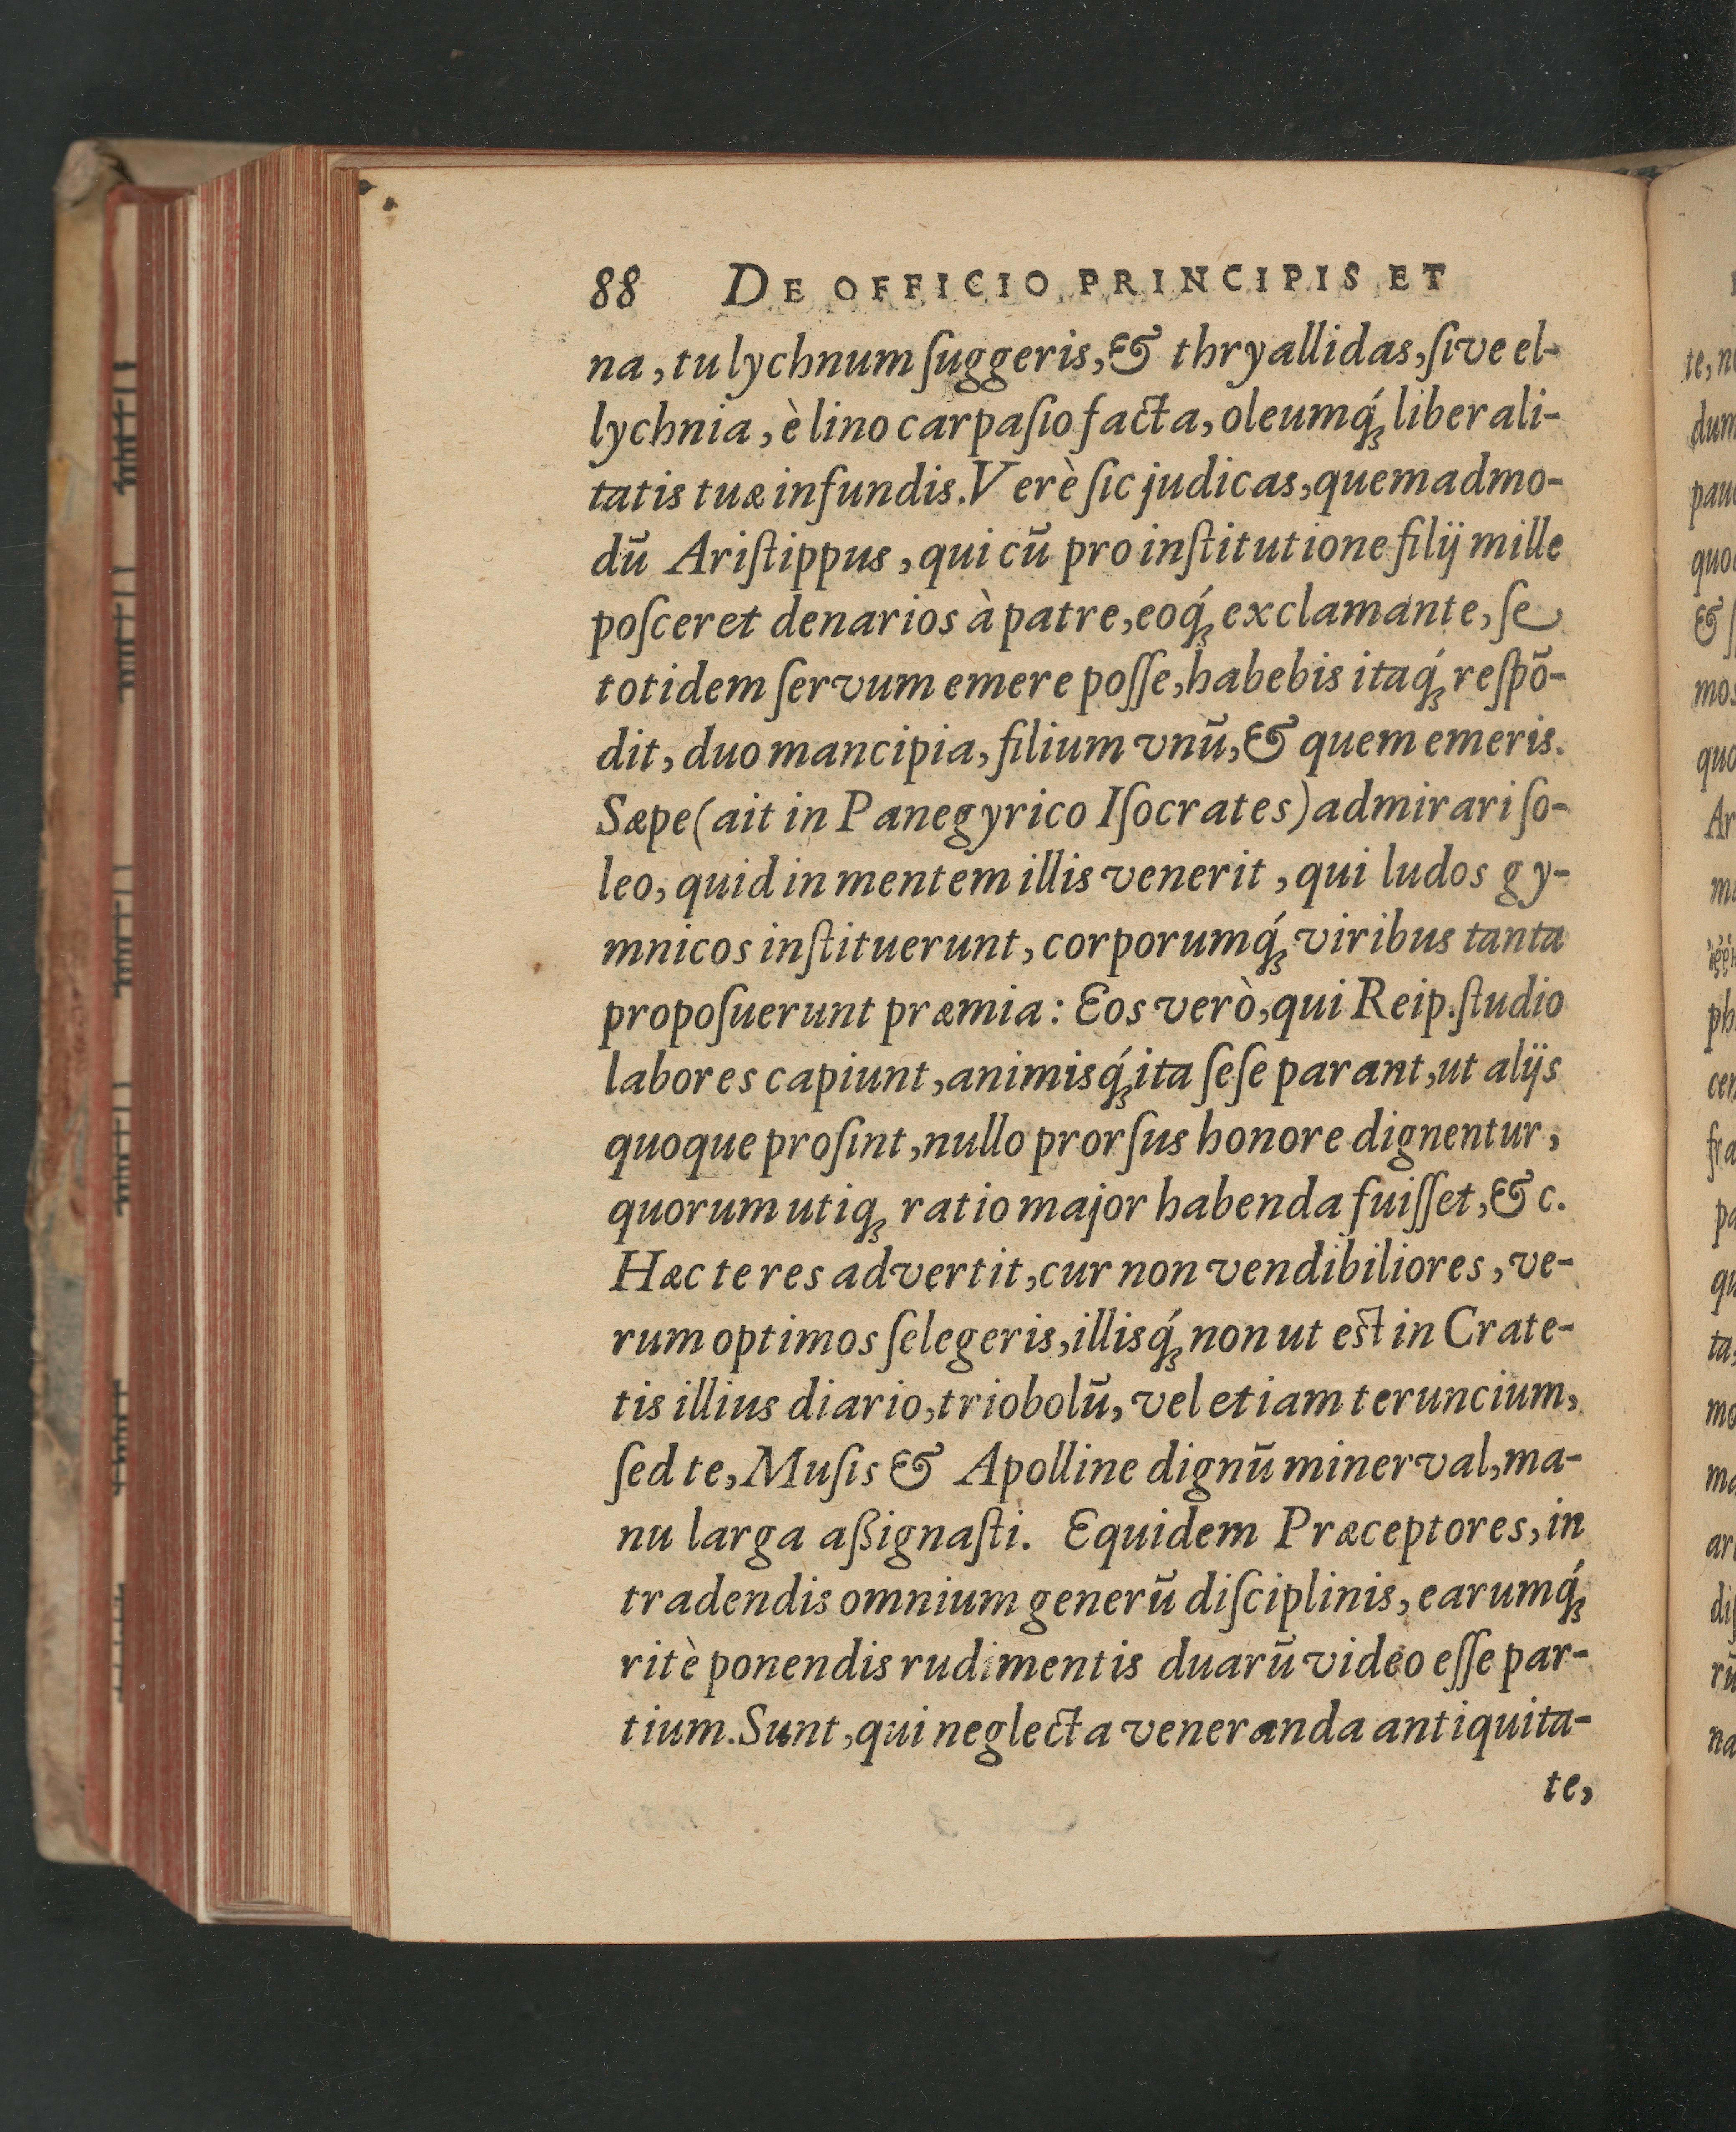 88 DE OFFICIO PRINCIPIS ET
na, tu lychnum ſuggeris, & thryallidas, ſive el-
lychnia, è lino carpaſio facta, oleumq́; liberali-
tatis tuæ infundis. Verè ſic judicas, quemadmo-
dū Ariſtippus, qui cū pro inſtitutione filij mille
poſceret denarios à patre, eoq́; exclamante, ſe
totidem ſervum emere poſſe, habebis itaq́; reſpō-
dit, duo mancipia, filium vnū, & quem emeris.
Sæpe (ait in Panegyrico Iſocrates) admirari ſo-
leo, quid in mentem illis venerit, qui ludos gy-
mnicos inſtituerunt, corporumq́; viribus tanta
propoſuerunt præmia: Eos verò, qui Reip. ſtudio
labores capiunt, animisq́; ita ſeſe parant, ut alijs
quoque proſint, nullo prorſus honore dignentur,
quorum utiq; ratio major habenda fuiſſet, &c.
Hæc te res advertit, cur non vendibiliores, ve-
rum optimos ſelegeris, illisq́; non ut est in Crate-
tis illius diario, triobolū, vel etiam teruncium,
ſed te, Muſis & Apolline dignū minerval, ma-
nu larga aßignaſti. Equidem Præceptores, in
tradendis omnium generū diſciplinis, earumq́;
ritè ponendis rudimentis duarū video eſſe par-
tium. Sunt, qui neglecta veneranda antiquita-
te,
te, n
dum
pau
quo
&
mos
quo
Ar
ph
cen
fra
pa
qu
ta,
mo
ma
ar
diſ
rū
na